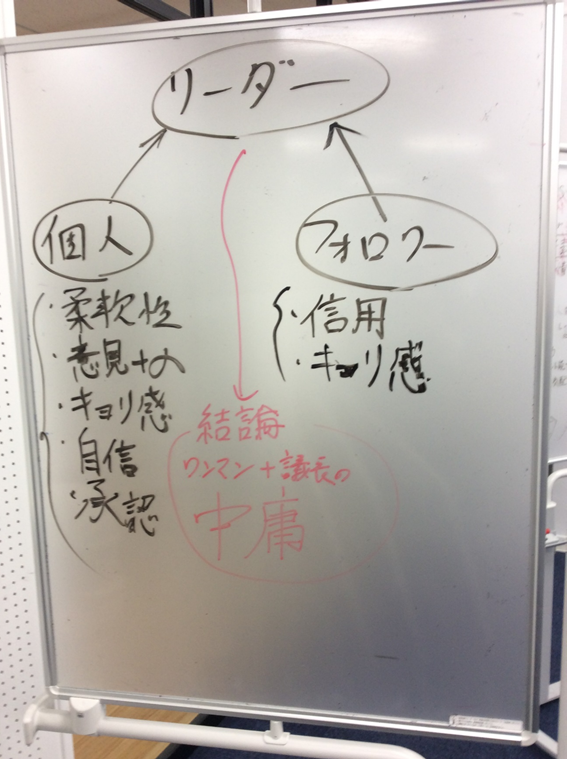 リーダー
個人
フォロワー
・柔軟性
・意見+α
・キョリ感
・自信
・承認
・信用
・キョリ感
結論
ワンマン+議長の
中庸